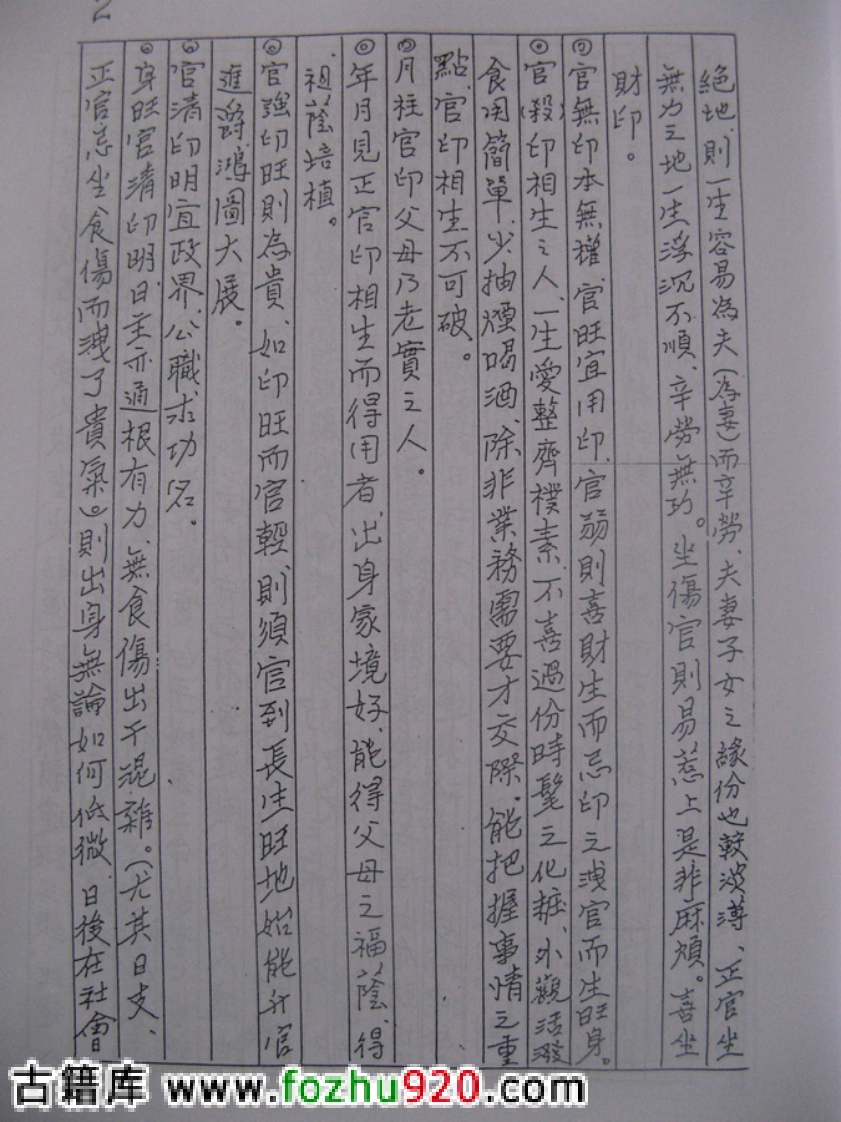 2
絕地、則一生容易為夫(為妻)而辛勞、夫妻子女之緣份也較波薄、正官坐
無力之地一生浮沉不順、辛勞無功。坐傷官則易惹上是非麻煩。喜坐
財印。
◎官無印本無權、官旺宜用印、官弱則喜財生而忌印之洩官而生旺身。
◎官(殺)印相生之人、一生愛整齊樸素、不喜過份時髦之化粧、外觀活潑
食用簡單、少抽煙喝酒、除非業務需要才交際。能把握事情之重
點、官印相生、不可破。
◎月柱官印父母乃老實之人。
◎年月見正官印相生而得用者、出身家境好、能得父母之福蔭、得
祖蔭培植。
◎官強印旺則為貴、如印旺而官輕、則須官到長生旺地始能升官
進爵鴻圖大展。
◎官清印明宜政界、公職、求功名。
◎身旺官清印明、日主亦通根有力、無食傷出干混雜。(尤其日支、
正官忌坐食傷而洩了貴氣。)則出身無論如何低微、日後在社會
古籍库 www.fozhu920.com